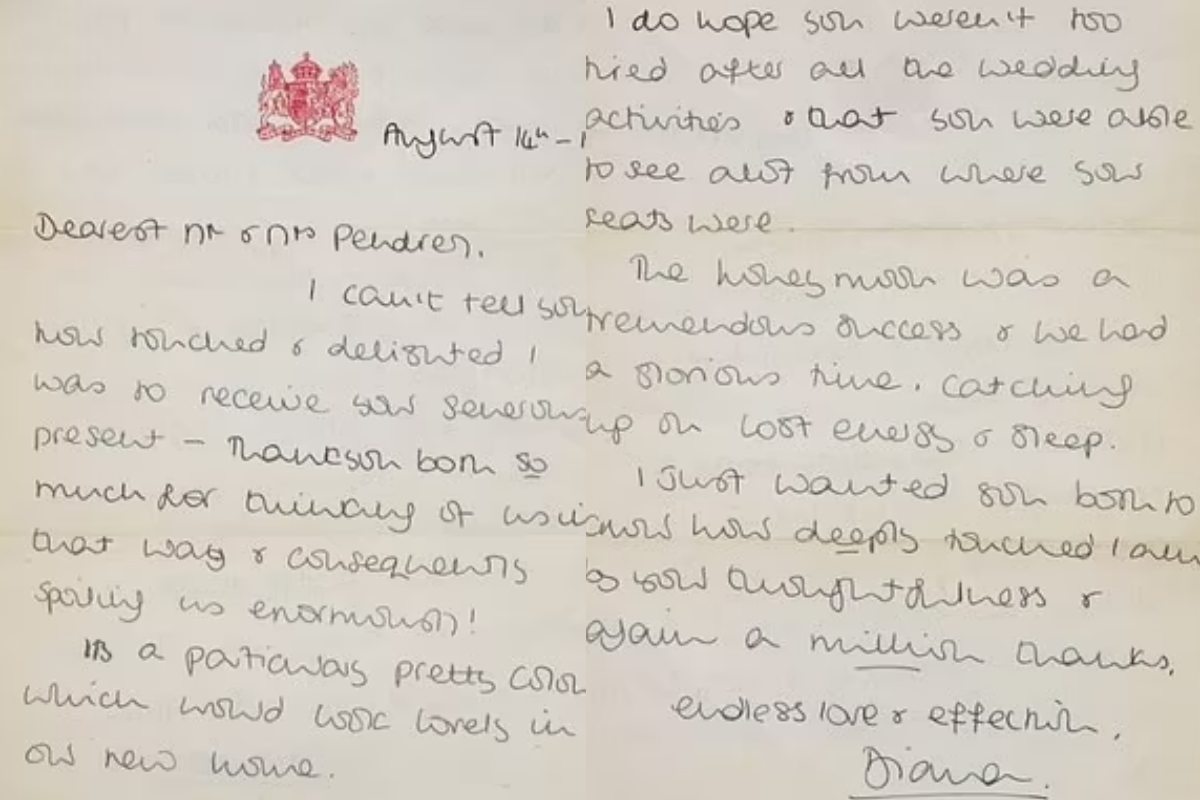 August 14th - 1
Dearest Mr & Mrs Pendrey.
I can't tell you
how touched & delighted I
was to receive your generous
present - Thank you both so
much for thinking of us in
that way & consequently
spoiling us enormously!
It's a particularly pretty colour
which would look lovely in
our new home.
I do hope you weren't too
tired after all the wedding
activities & that you were able
to see alot from where your
seats were.
The honeymoon was a
tremendous success & we had
a glorious time, catching
up on lost energy & sleep.
I just wanted you both to
know how deeply touched I am
by your thoughtfulness &
again a million thanks,
endless love & effection,
Diana.